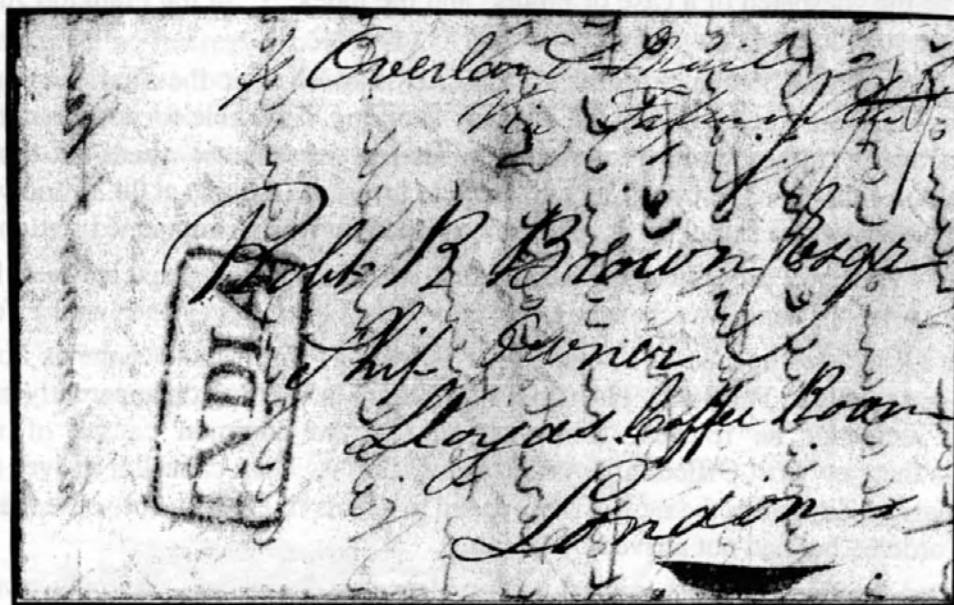 Overland Mail
Via Falmouth
Robt R Brown Esqr
Ship Owner
Lloyds Coffee Room
London
INDIA